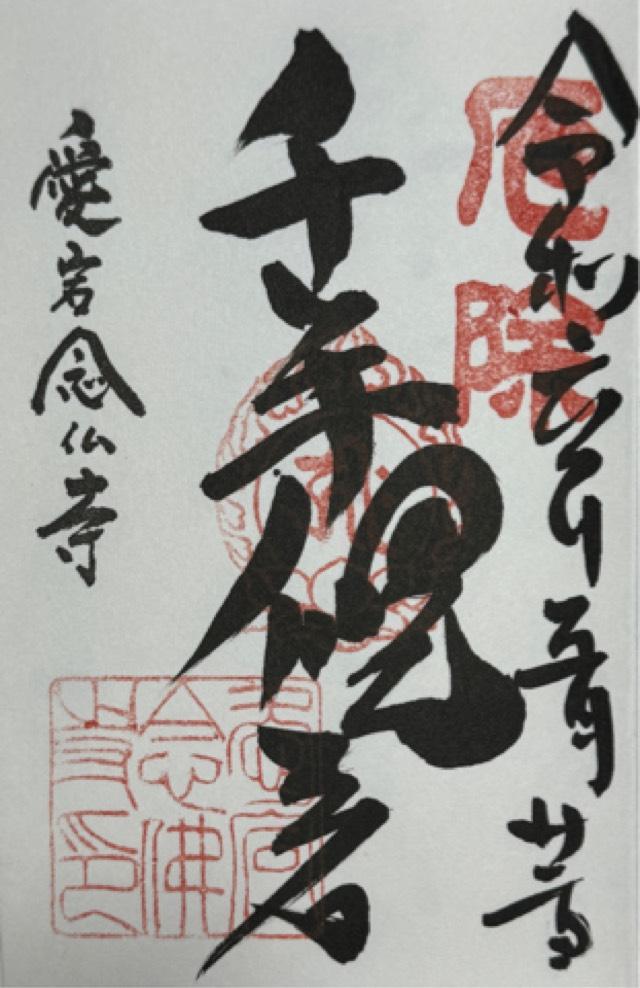 厄除
令和六年五月廿
千手観音
愛宕念仏寺
愛宕
念佛
寺印